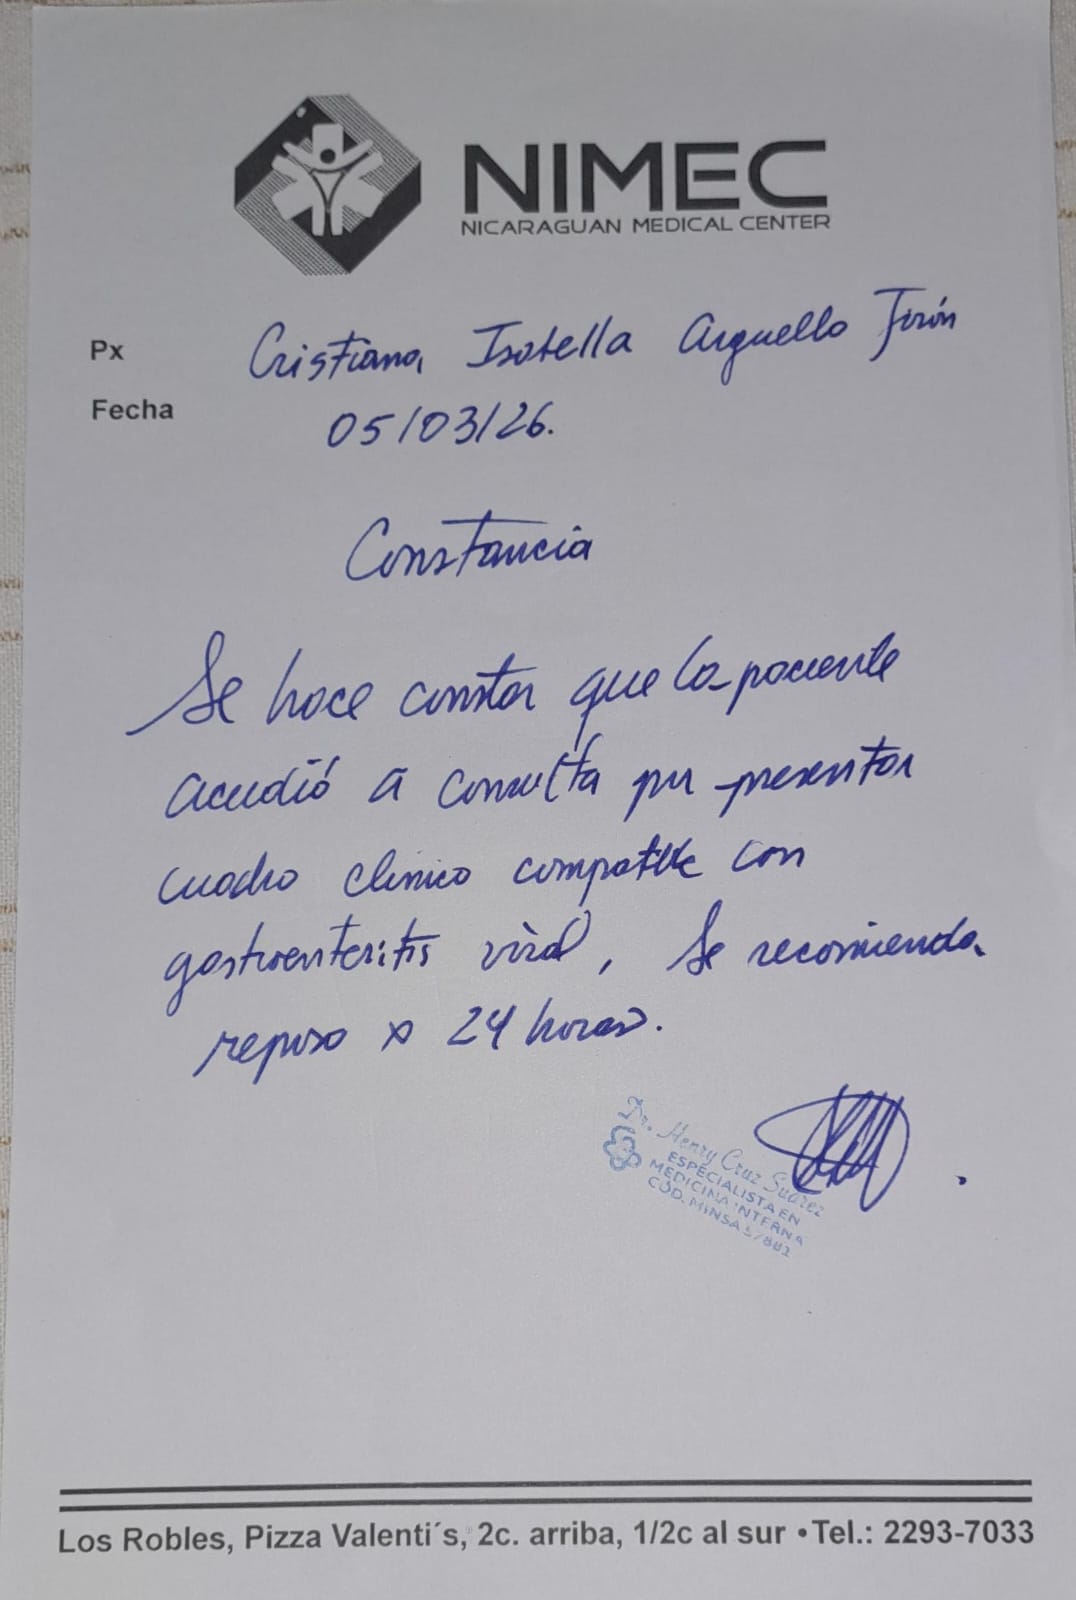 NIMEC
NICARAGUAN MEDICAL CENTER
Px Cristiana Isabella Arguello Jirón
Fecha 05/03/26.
Constancia
Se hace constar que la paciente
acudió a consulta por presentar
cuadro clínico compatible con
gastroenteritis viral, Se recomienda
reposo x 24 horas.
Dr. Henry Cruz Suárez
ESPECIALISTA EN
MEDICINA INTERNA
CÓD. MINSA
Los Robles, Pizza Valenti´s, 2c. arriba, 1/2c al sur • Tel.: 2293-7033